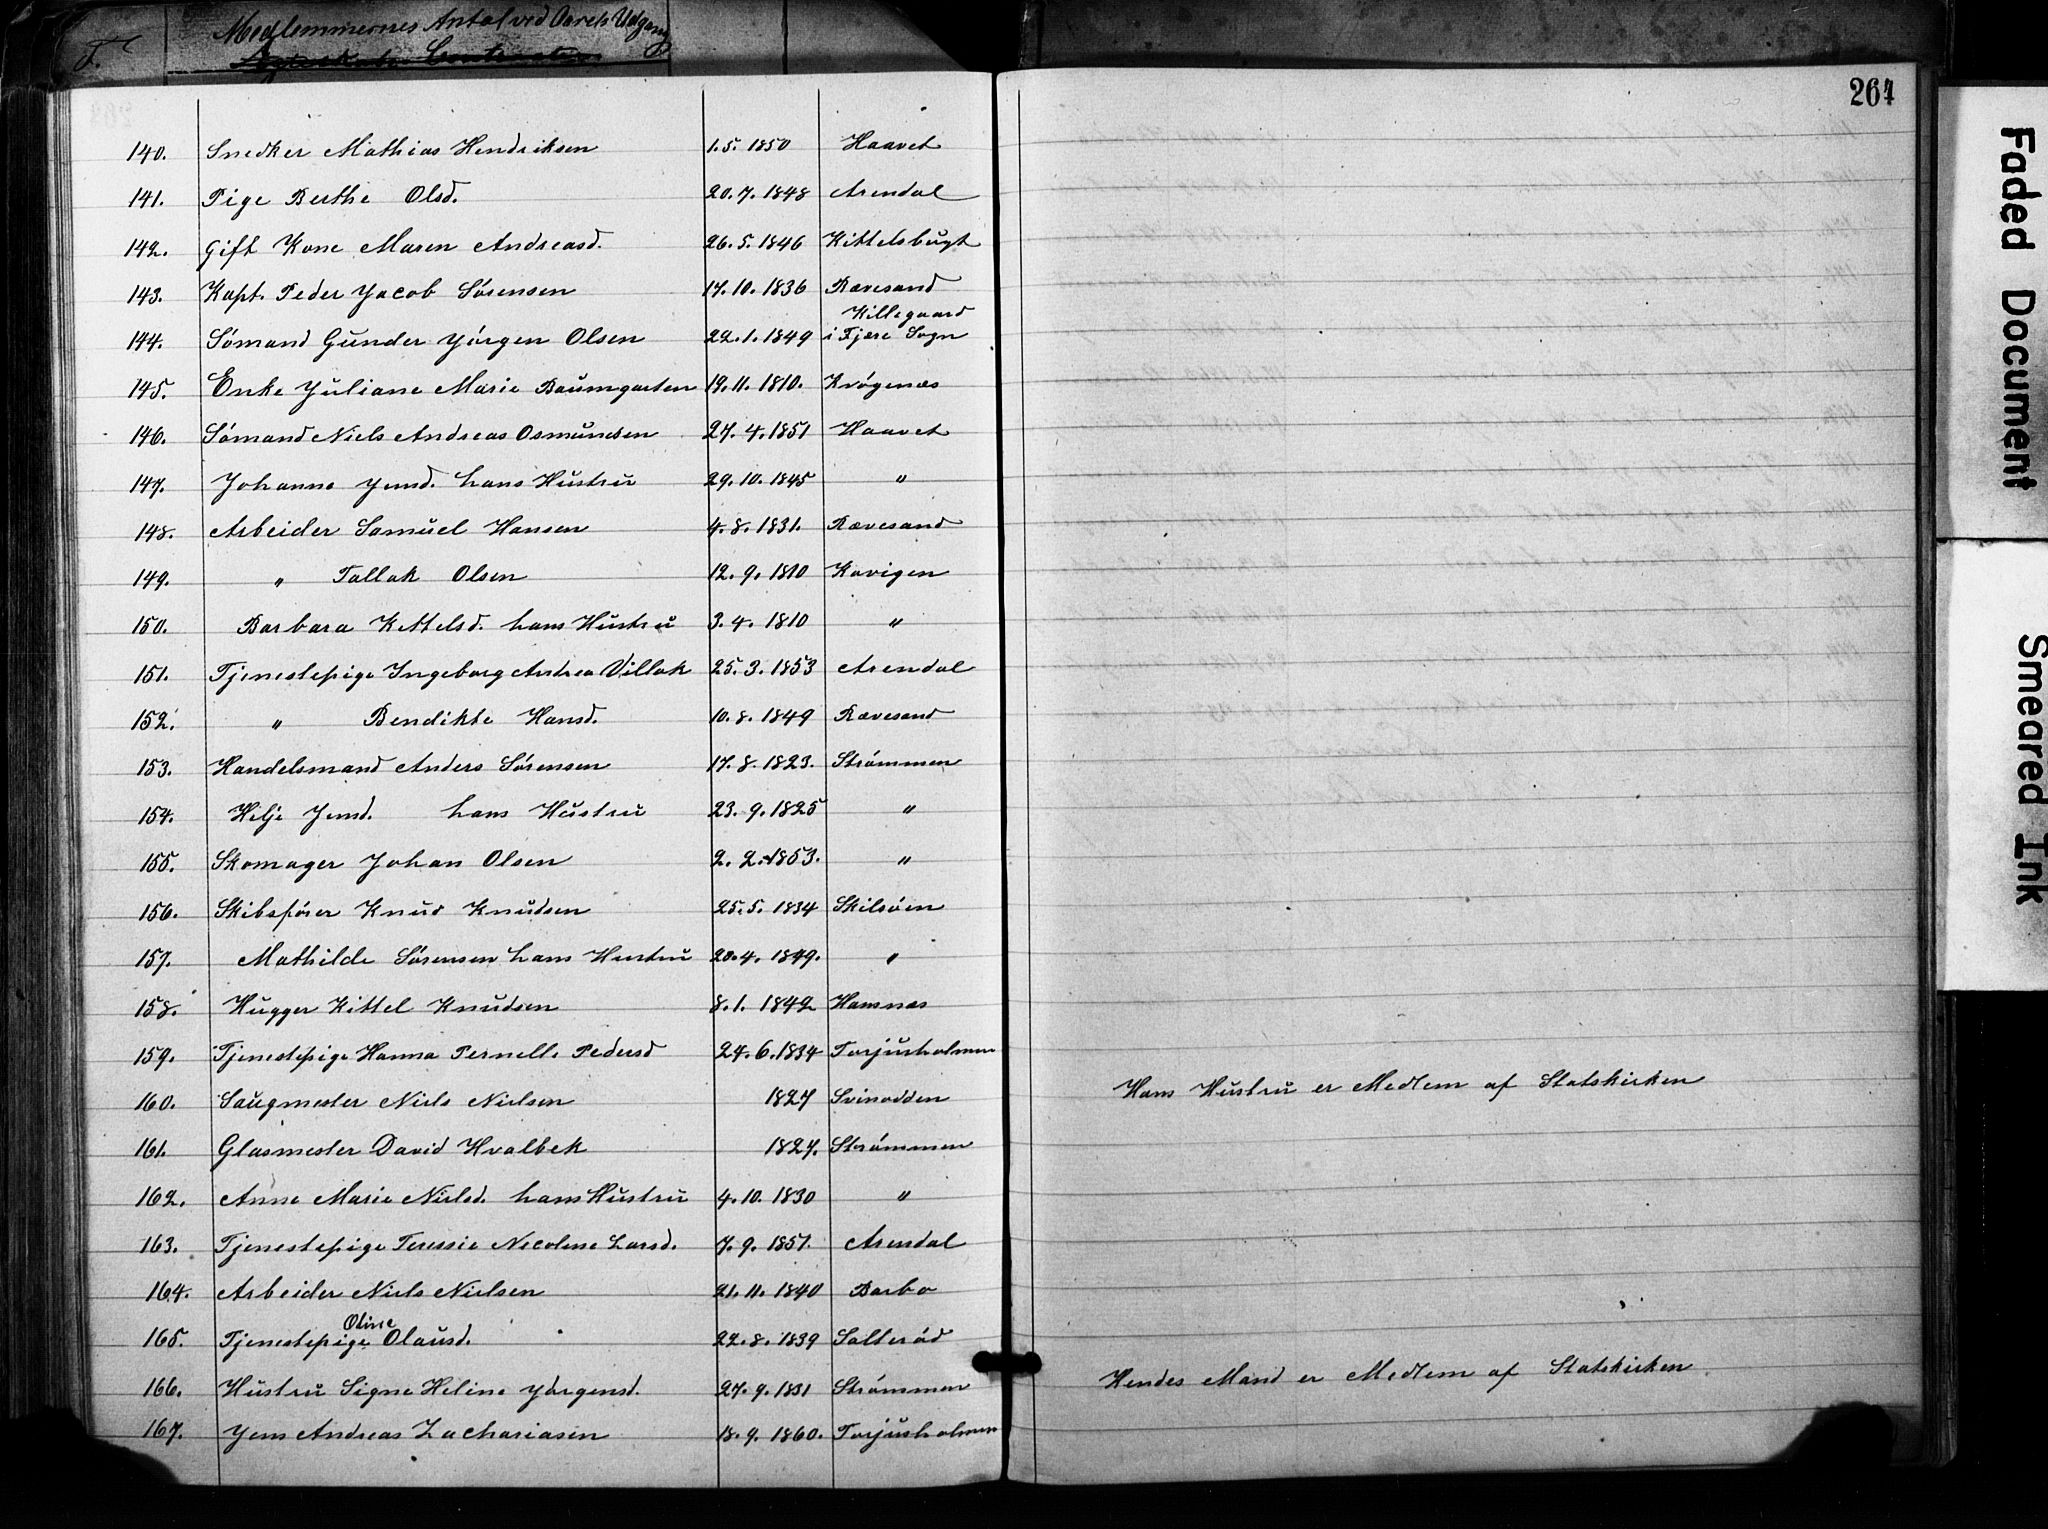 Medlemmernes Antal ved Aarets Udgang
264
140. Snedker Mathias Hendriksen 1.5. 1850 Haavet
141. Pige Berthe Olsd. 20.7. 1848 Arendal
142. Gift Kone Maren Andreasd. 26.5. 1846 Kittelsbugt
143. Kapt. Peder Jacob Sørensen 17.10. 1836 Rævesand
Killegaard
144. Sømand Gunder Jørgen Olsen 22.1. 1849 i Fjære Sogn
145. Enke Juliane Marie Baumgarten 19.11. 1810. Krøgenæs
146. Sømand Niels Andreas Osmundsen 27.4.1851 Haavet
147. Johanne Jensd. hans Hustru 29.10.1845 "
148. Arbeider Samuel Hansen 4.8.1831. Rævesand
149. " Tallak Olsen 12.9.1810 Kavigen
150. Barbara Kittelsd. hans Hustru 3.4. 1810 "
151. Tjenestepige Ingeborg Andrea Villak 25.3. 1853 Arendal
152. " Bendikte Hansd. 10.8. 1849 Rævesand
153. Handelsmand Anders Sørensen 17.8. 1823. Strømmen
154. Helje Jensd. hans Hustru 23.9.1825 "
155. Skomager Johan Olsen 2.2.1853. "
156. Skibsfører Knud Knudsen 25.5. 1834 Skilsøen
157. Mathilde Sørensen hans Hustru 20.4. 1849. "
158. Hugger Kittel Knudsen 8.1. 1842 Hamnæs
159. Tjenestepige Hanna Pernelle Pedersd 24.6.1834 Torjusholmen
160. Saugmester Niels Nielsen 1827 Svinodden Hans Hustru er Medlem af Statskirken
161. Glasmester David Hvalbek 1827. Strømmen
162. Anne Marie Nielsd. hans Hustru 4.10. 1830 "
163. Tjenestepige Teressie Nicoline Larsd. 7.9. 1851. Arendal
164. Arbeider Niels Nielsen 21.11. 1840 Barbo
Oline
165. Tjenestepige Olausd. 22.8. 1839 Salterød
166. Hustru Signe Heline Jørgensd. 27.9.1831 Strømmen Hendes Mand er Medlem af Statskirken
167. Jens Andreas Zachariasen 18.9. 1860. Torjusholmen
Faded Document
Smeared Ink